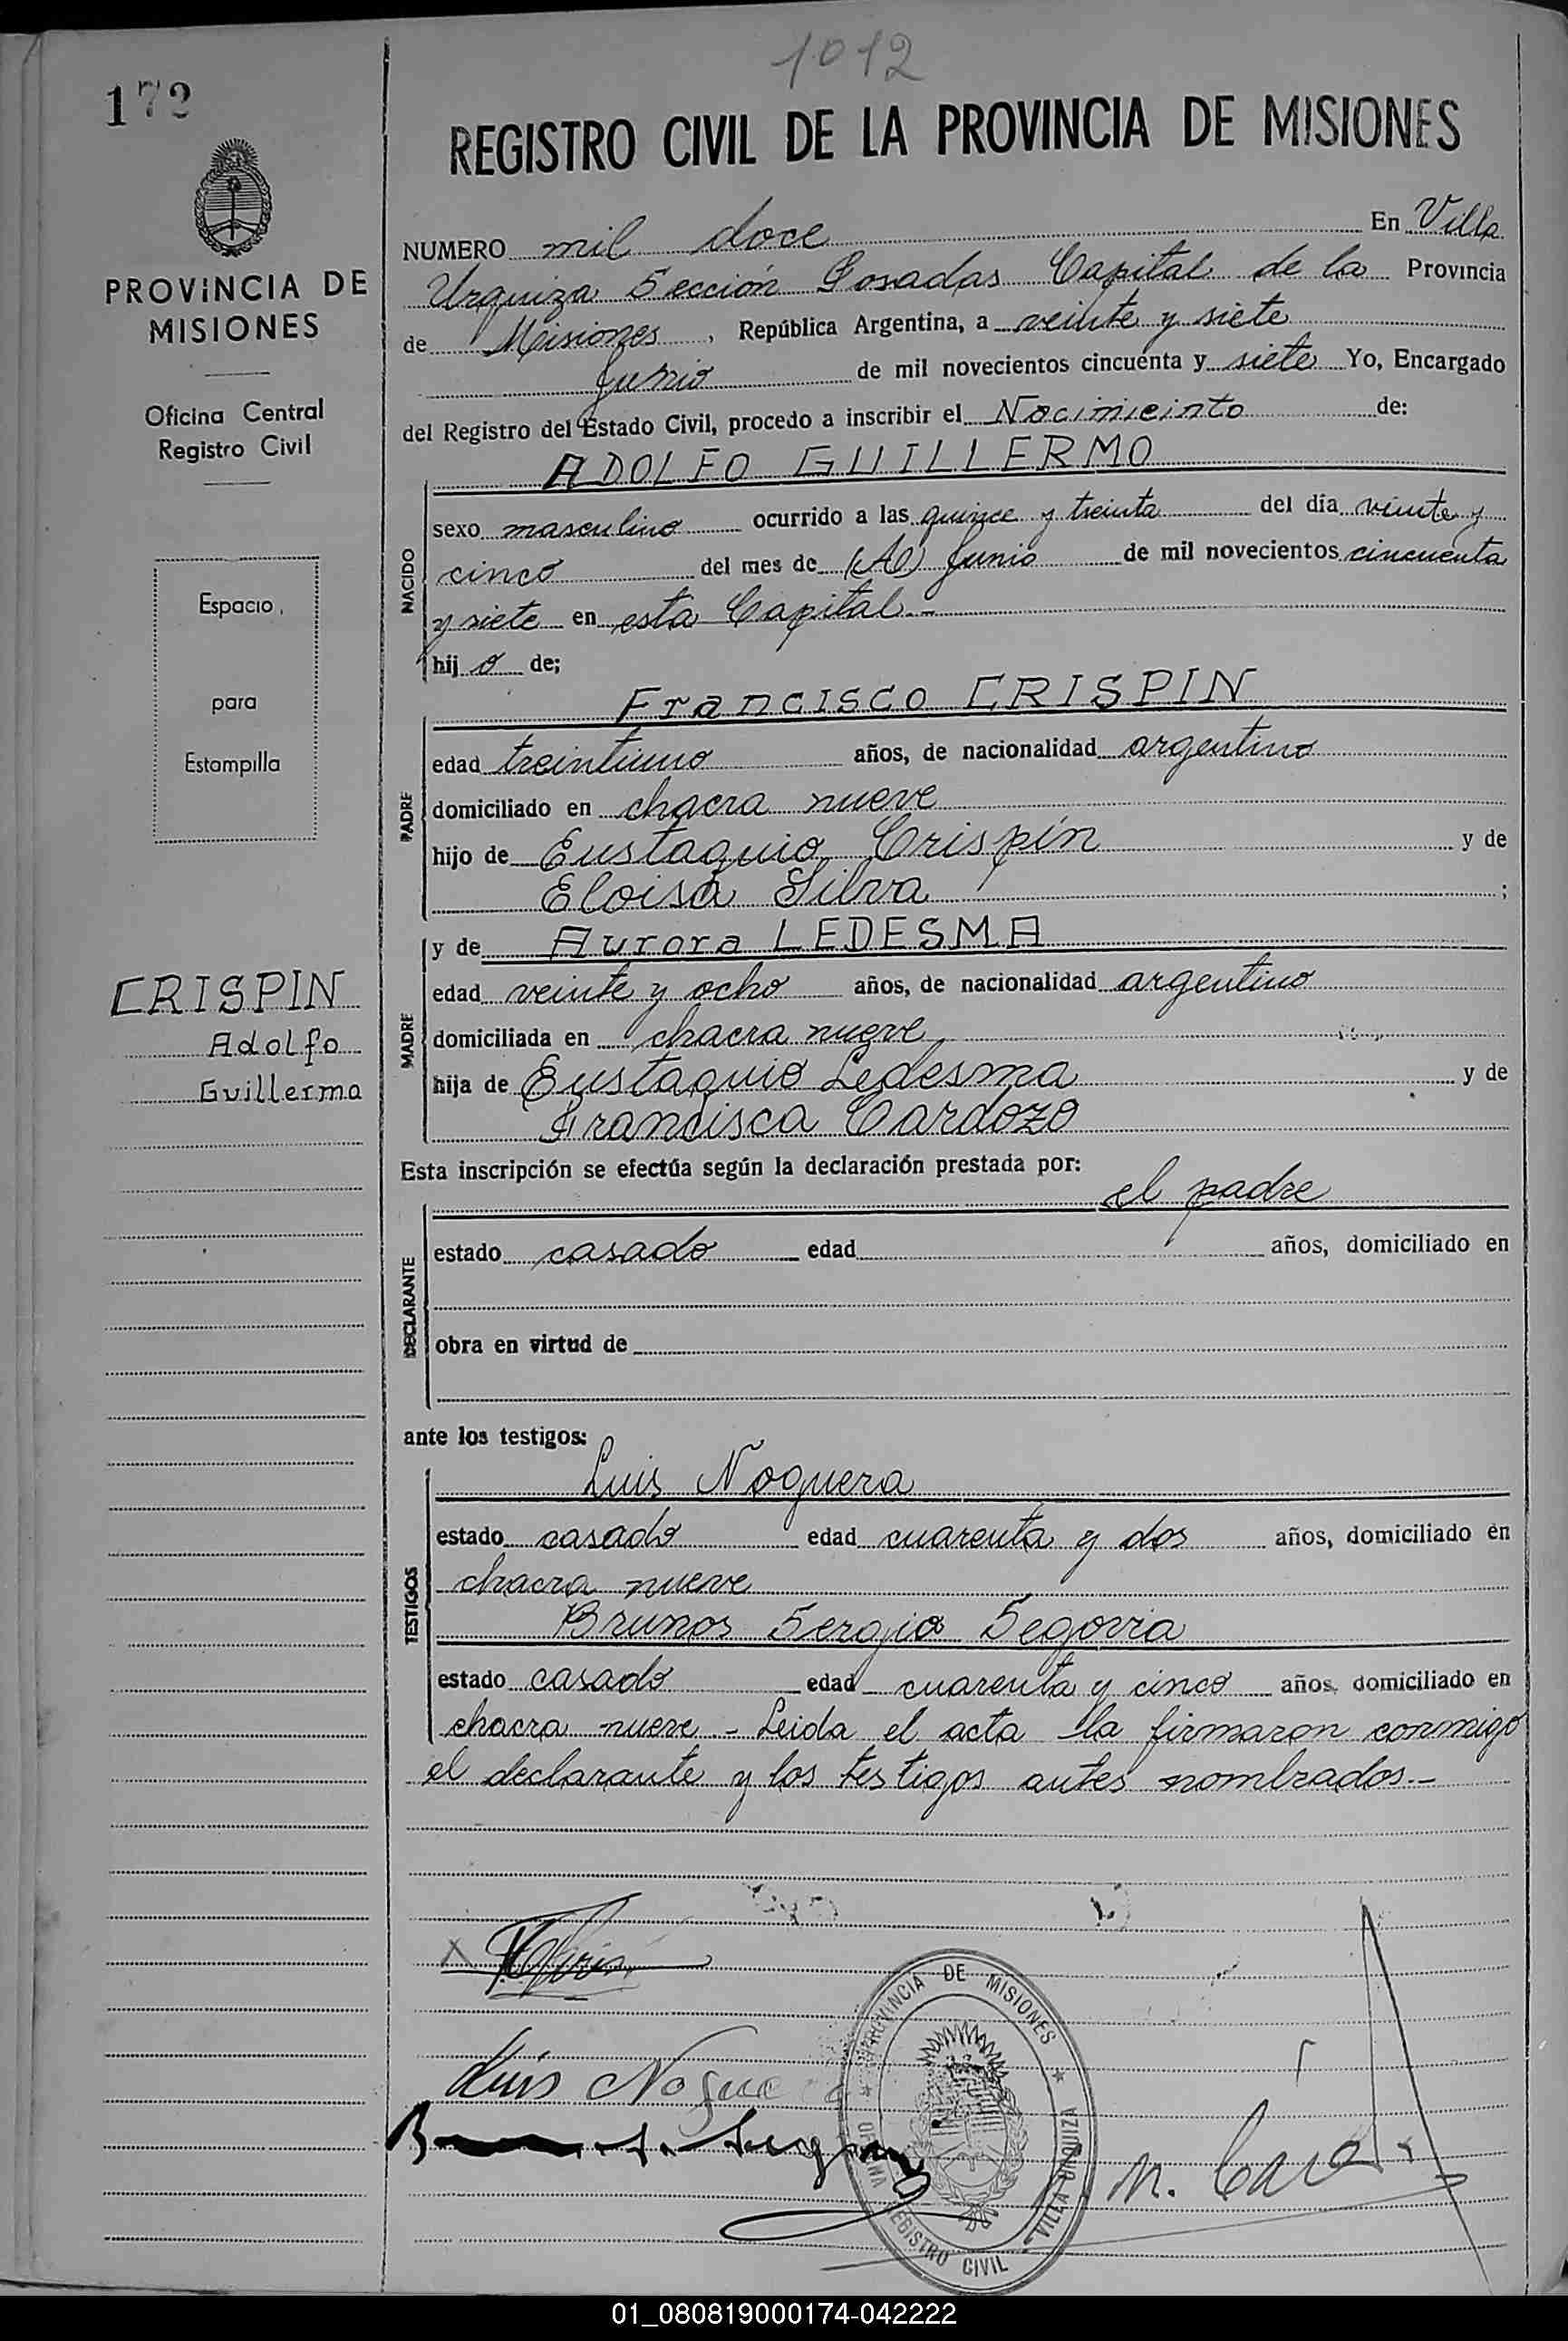 1012
172
REGISTRO CIVIL DE LA PROVINCIA DE MISIONES
PROVINCIA DE
MISIONES
Oficina Central
Registro Civil
Espacio
para
Estampilla
CRISPIN
Adolfo
Guillermo
NUMERO mil doce En Villa
Urquiza Sección Posadas Capital de la Provincia
de Misiones, República Argentina, a veinte y siete
Junio de mil novecientos cincuenta y siete Yo, Encargado
del Registro del Estado Civil, procedo a inscribir el Nacimieinto de:
ADOLFO GUILLERMO
NACIDO
sexo masculino ocurrido a las quince y treinta del día veinte y
cinco del mes de Junio de mil novecientos cincuenta
y siete en esta Capital.-
hijo de;
Francisco CRISPIN
PADRE
edad treintiuno años, de nacionalidad argentino
domiciliado en chacra nueve
hijo de Eustaquio Crispín y de
Eloisa Silva ;
MADRE
y de Aurora LEDESMA
edad veinte y ocho años, de nacionalidad argentino
domiciliada en chacra nueve
hija de Eustaquio Ledesma y de
Francisca Cardozo
Esta inscripción se efectúa según la declaración prestada por:
el padre
DECLARANTE
estado casado edad años, domiciliado en
obra en virtud de
ante los testigos:
TESTIGOS
Luis Noguera
estado casado edad cuarenta y dos años, domiciliado en
chacra nueve
Brunos Sergio Segovia
estado casado edad cuarenta y cinco años, domiciliado en
chacra nueve - Leida el acta la firmaron conmigo
el declarante y los testigos antes nombrados.-
Luis Nogue
PROVINCIA DE MISIONES
OFICINA REGISTRO CIVIL
VILLA URQUIZA
01_080819000174-042222